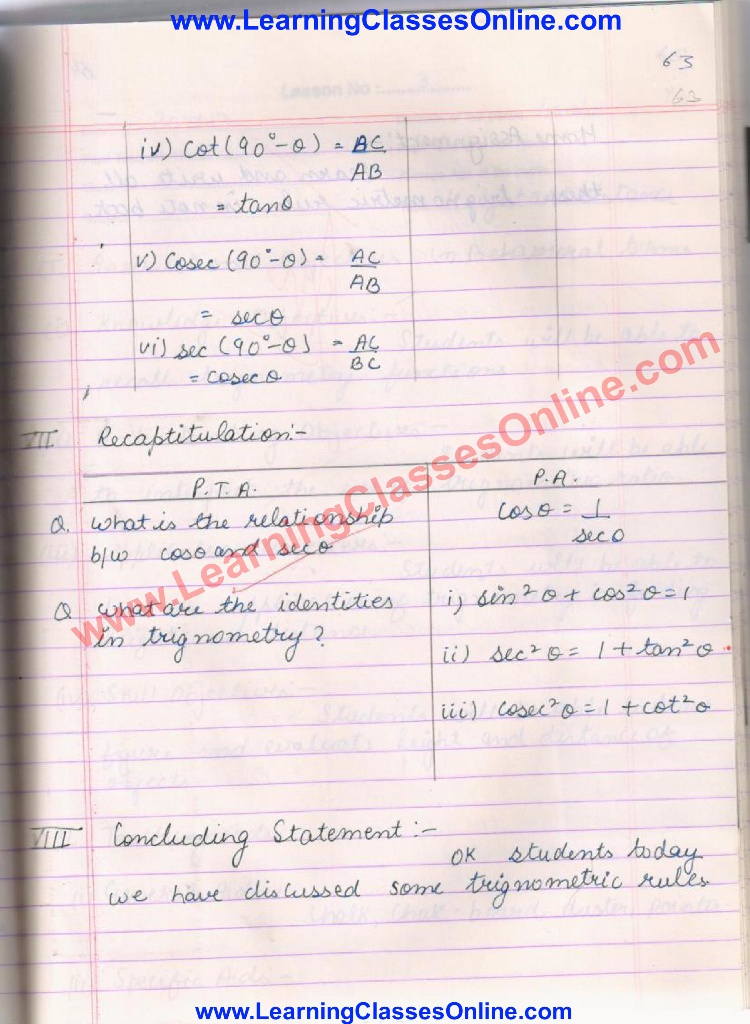 www.LearningClassesOnline.com
Lesson No :.........3.........
63
63
iv) cot (90°-θ) = AC/AB
= tanθ
v) Cosec (90°-θ) = AC/AB
= secθ
vi) sec (90°-θ) = AC/BC
= cosec θ
VII Recaptitulation:-
P.T.A. P.A.
Q. what is the relationship
b/w cosθ and secθ
cosθ = 1/secθ
Q what are the identities
in trignometry?
i) sin²θ + cos²θ = 1
ii) sec²θ = 1 + tan²θ
iii) cosec²θ = 1 + cot²θ
www.LearningClassesOnline.com
VIII Concluding Statement :-
OK students today
we have discussed some trignometric rules
www.LearningClassesOnline.com